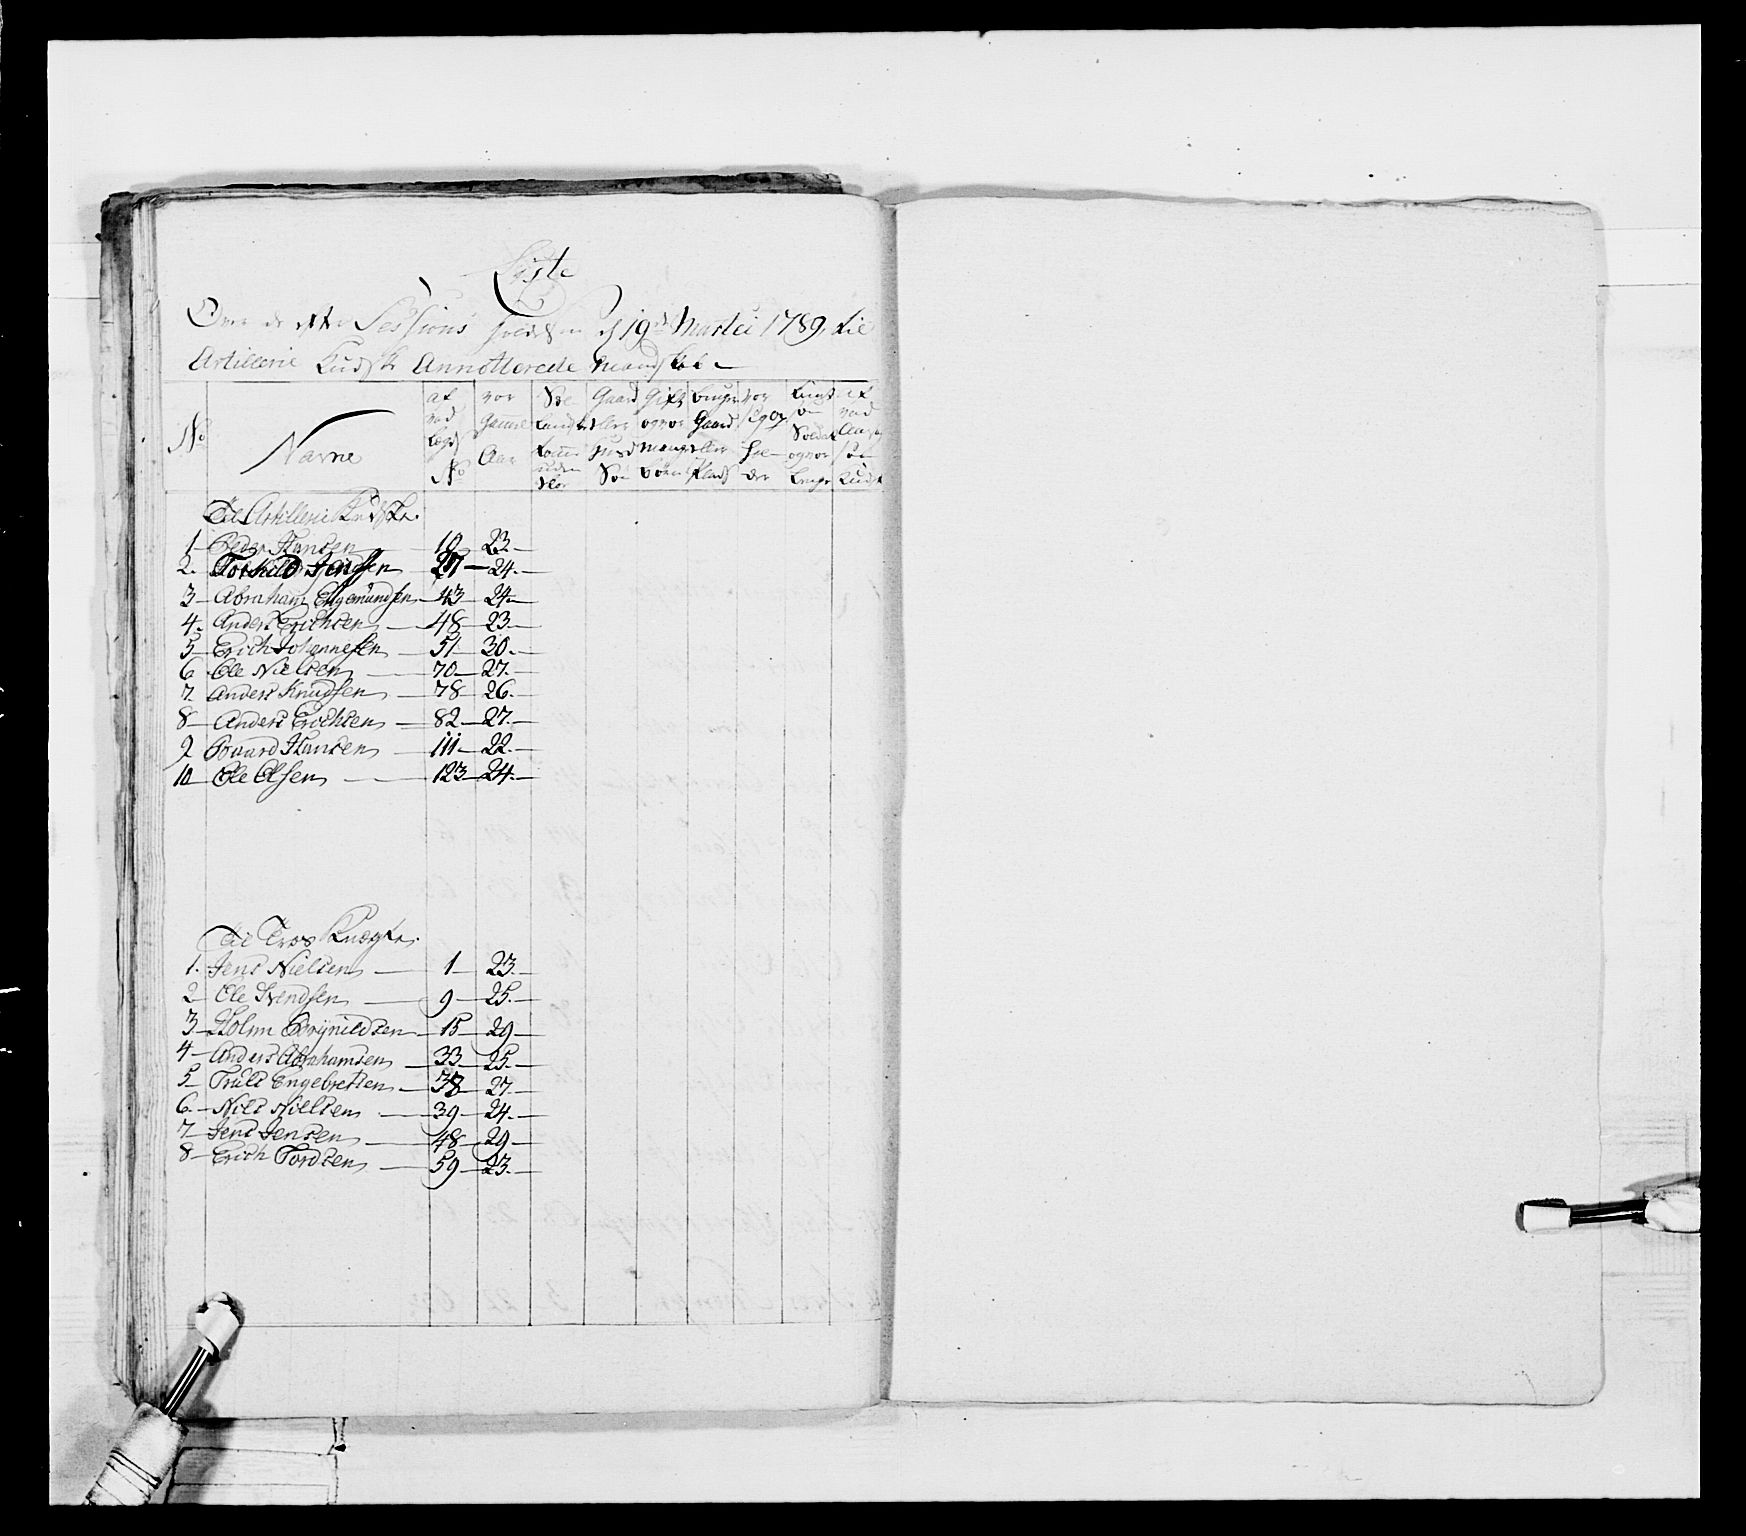 Liste
Over de efter Sessions holdelsen d 19de Martii 1789, til
Artillerie Kudske Annotterede Mandskab
No
Navne
af vad Lægds No
vor Gammel Aar
Gaard eller Huusmands Søn
Gift og vor mange Børn
Til Artillerie Kudske.
1 Peder Hansen 10 23.
2. Torkild Jensen 27 24.
3 Abraham Engemundsen 43 24
4. Anders Erichsen 48 23.
5 Erich Johannesen 51 30.
6 Ole Nielsen 70 27.
7 Anders Knudsen 78 26.
8 Anders Erichsen 82 27.
9 Hansen 111 22.
10 Ole Olsen 123 24.
Til Tros Knægte.
1. Jens Nielsen 1 23.
2 Ole Svendsen 9 25.
3 Holm Brÿnildsen 15 29
4 Anders Abrahamsen 33 25.
5 Truls Engebretsen 38 27.
6. Nils Nielsen 39 24.
7 Jens Jensen 48 29
8 Erich Tordsen 59 23.